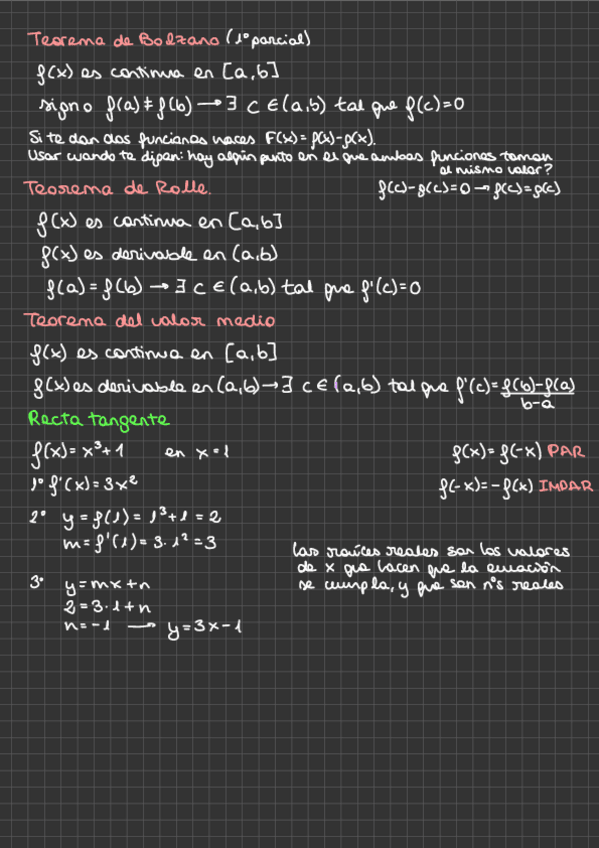 Teorema de Bolzano (1º parcial)
f(x) es continua en [a,b]
signo f(a) ≠ f(b) → ∃ c ∈ (a,b) tal que f(c)=0
Si te dan dos funciones haces F(x)= f(x)-g(x).
Usar cuando te digan: hay algún punto en el que ambas funciones toman
el mismo valor?
f(c)-g(c)=0 → f(c)=g(c)
Teorema de Rolle.
f(x) es continua en [a,b]
f(x) es derivable en (a,b)
f(a) = f(b) → ∃ c ∈ (a,b) tal que f'(c)=0
Teorema del valor medio
f(x) es continua en [a,b]
f(x) es derivable en (a,b) → ∃ c ∈ (a,b) tal que f'(c)= f(b)-f(a) / b-a
Recta tangente
f(x)= x³+1 en x=1
f(x)= f(-x) PAR
1º f'(x)= 3x²
f(-x)= -f(x) IMPAR
2º y = f(1) = 1³+1 = 2
m = f'(1) = 3·1² = 3
las raíces reales son los valores
de x que hacen que la ecuación
se cumpla, y que sen nºs reales
3º y = mx+n
2 = 3·1+n
n = -1 → y = 3x-1